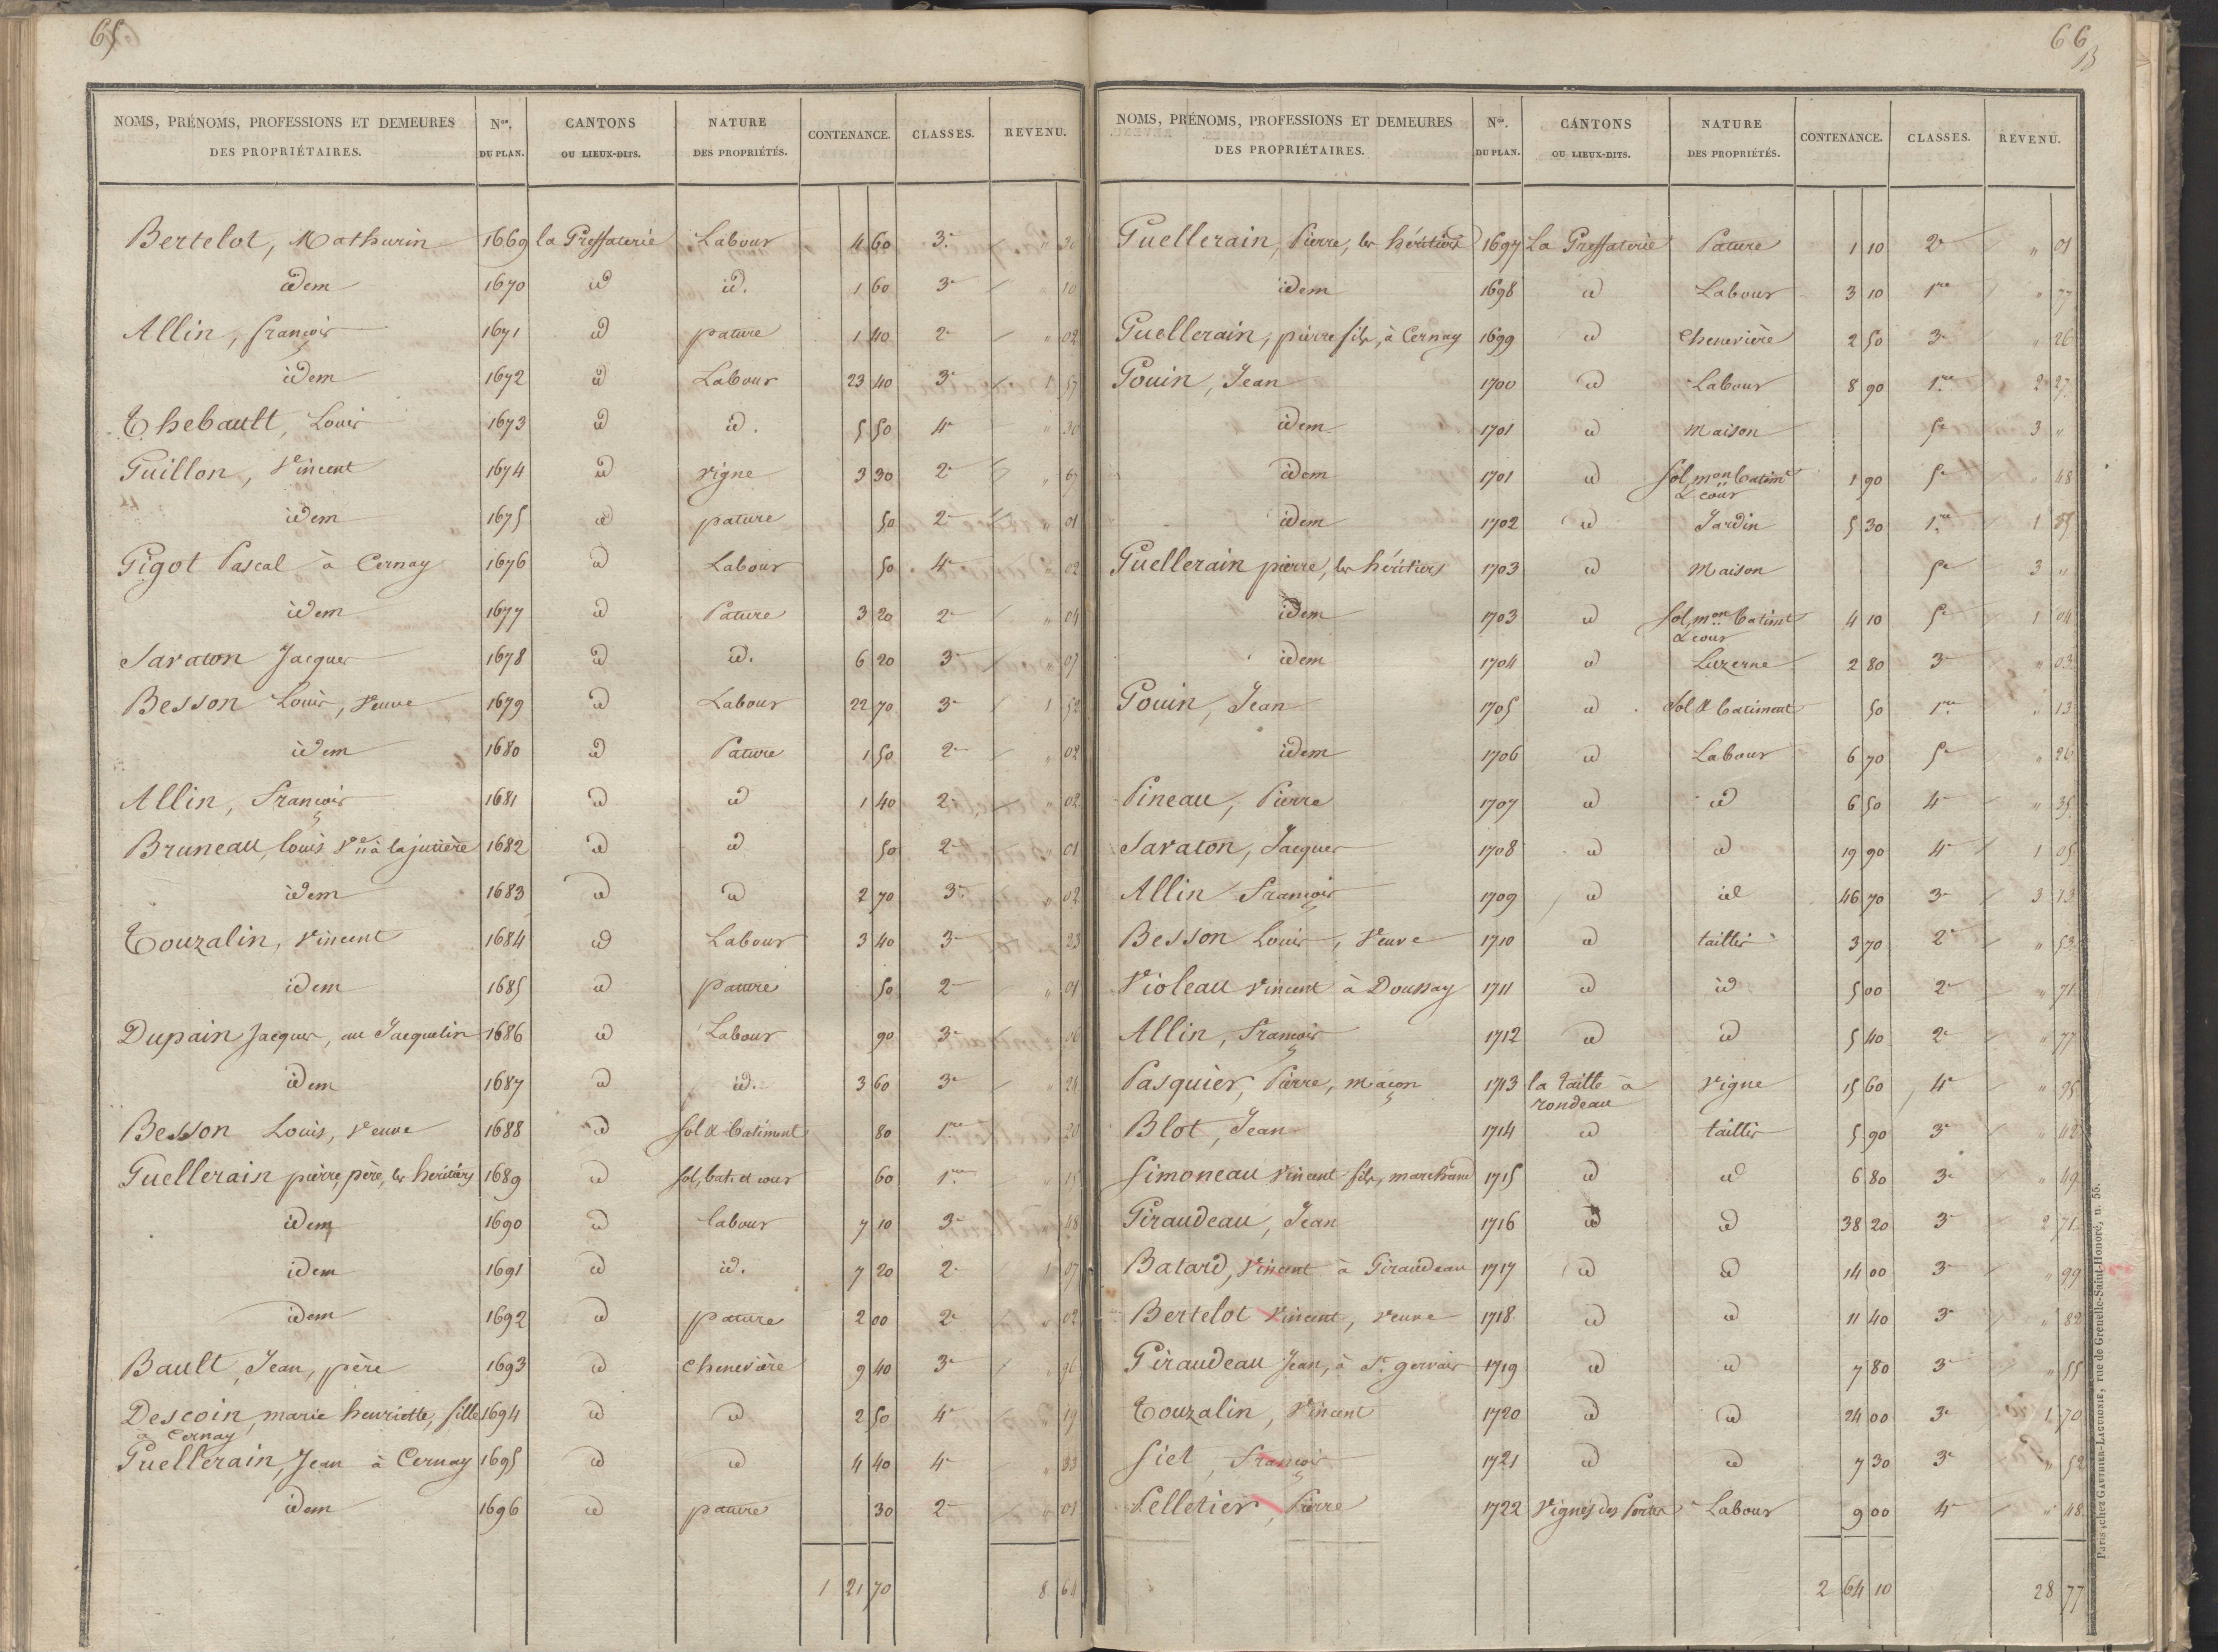 65
NOMS, PRÉNOMS, PROFESSIONS ET DEMEURES DES PROPRIÉTAIRES. Nos. DU PLAN. CANTONS OU LIEUX-DITS. NATURE DES PROPRIÉTÉS. CONTENANCE. CLASSES. REVENU.
Bertelot, Mathurin 1669 la Pressaterie Labour 4 60 3e " 30
idem 1670 id id. 1 60 3e " 10
Allin, françois 1671 id pature 1 40 2e " 02
idem 1672 id Labour 23 40 3e 1 57
Thebault, Louis 1673 id id. 5 50 4e " 30
Guillon, Vincent 1674 id vigne 3 30 2e " 67
idem 1675 id pature 50 2e " 01
Gigot Pascal à Cernay 1676 id Labour 50 4e " 02
idem 1677 id Pature 3 20 2e " 04
Savaton Jacques 1678 id id. 6 20 3e " 07
Besson Louis, Veuve 1679 id Labour 22 70 3e 1 52
idem 1680 id Pature 1 50 2e " 02
Allin, François 1681 id id 1 40 2e " 02
Bruneau, louis Ve à la jutière 1682 id id 50 2e " 01
idem 1683 id id 2 70 3e " 02
Touzalin, Vincent 1684 id Labour 3 40 3e 23
idem 1685 id pature 50 2e " 01
Dupain Jacques, au Jacquelin 1686 id Labour 90 3e 06
idem 1687 id id. 3 60 3e " 24
Besson Louis, Veuve 1688 id sol & batiment 80 1re 20
Guellerain pierre père, les heritiers 1689 id sol, bat. et cour 60 1re " 15
idem 1690 id labour 7 10 3e 48
idem 1691 id id. 7 20 2e 1 07
idem 1692 id pature 2 00 2e " 02
Bault, Jean, père 1693 id chenevière 9 40 3e " 96
Descoin, marie henriette, fille 1694 id id 2 50 4e " 19
à Cernay
Guellerain, Jean à Cernay 1695 id id 4 40 4e " 33
idem 1696 id pature 30 2e " 01
1 21 70 8 64
66
NOMS, PRÉNOMS, PROFESSIONS ET DEMEURES DES PROPRIÉTAIRES. Nos. DU PLAN. CANTONS OU LIEUX-DITS. NATURE DES PROPRIÉTÉS. CONTENANCE. CLASSES. REVENU.
Guellerain, Pierre, les héritiers 1697 La Pressaterie Pature 1 10 2e " 01
idem 1698 id Labour 3 10 1re " 77
Guellerain, pierre fils, à Cernay 1699 id chenevière 2 50 3e " 26
Gouin, Jean 1700 id Labour 8 90 1re 2 27
idem 1701 id Maison 5e 3 "
idem 1701 id sol, mon batimt 1 90 5e " 48
& cour
idem 1702 id Jardin 5 30 1re 1 35
Guellerain pierre, les héritiers 1703 id Maison 5e 3 "
idem 1703 id sol, mon batimt 4 10 5e 1 04
& cour
idem 1704 id Luzerne 2 80 3e " 03
Gouin, Jean 1705 id sol & batiment 50 1re " 13
idem 1706 id Labour 6 70 5e " 26
Pineau, Pierre 1707 id id 6 50 4e " 35
Savaton, Jacques 1708 id id 19 90 4e 1 05
Allin François 1709 id id 46 70 3e 3 13
Besson Louis, Veuve 1710 id taillis 3 70 2e " 53
Violeau Vincent à Doussay 1711 id id 5 00 2e " 71
Allin, François 1712 id id 5 40 2e " 77
Pasquier, Pierre, maçon 1713 la taille à vigne 15 60 4e " 95
rondeau
Blot, Jean 1714 id taillis 5 90 3e " 42
Simoneau Vincent fils, marchand 1715 id id 6 80 3e " 49
Giraudeau, Jean 1716 id id 38 20 3e 2 71
Batard, Vincent à Giraudeau 1717 id id 14 00 3e " 99
Bertelot Vincent, Veuve 1718 id id 11 40 3e " 82
Giraudeau Jean, à St. gervais 1719 id id 7 80 3e " 55
Touzalin, Vincent 1720 id id 24 00 3e 1 70
Siet, François 1721 id id 7 30 3e " 52
Pelletier, Pierre 1722 Vignes des Portes Labour 9 00 4e " 48
2 64 10 28 77
Paris, chez GAUTHIER-LAGUIONIE, rue de Grenelle-Saint-Honoré, n. 55.